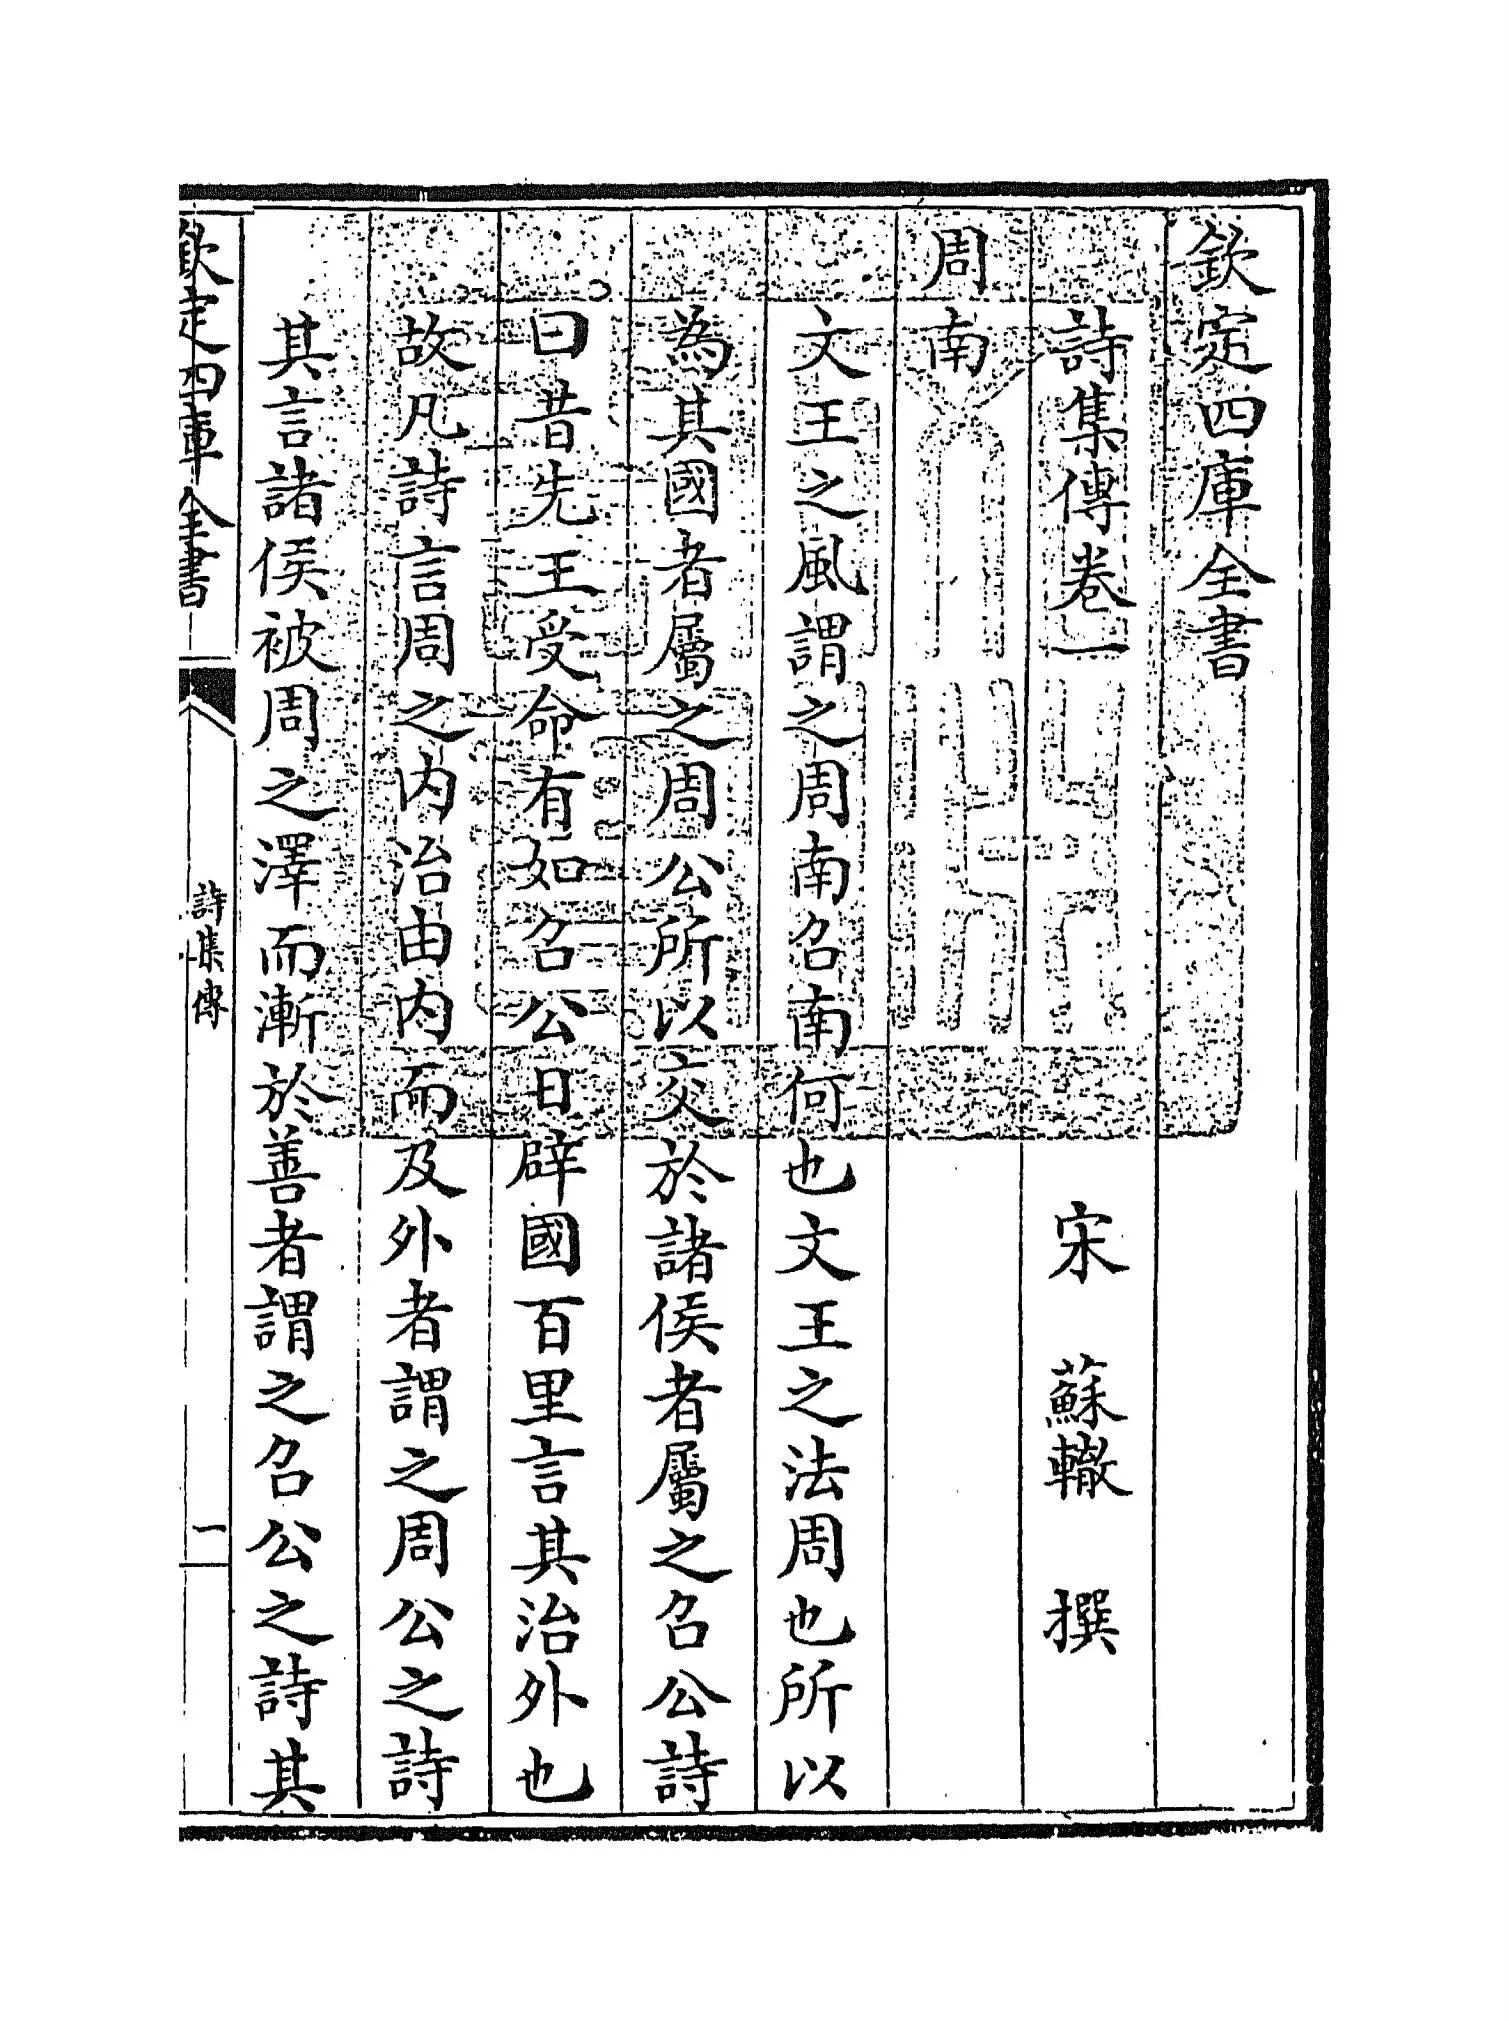 欽定四庫全書
詩集傳卷一 宋 蘇轍 撰
周南
文王之風謂之周南召南何也文王之法周也所以
為其國者屬之周公所以交於諸侯者屬之召公詩
曰昔先王受命有如召公日辟國百里言其治外也
故凡詩言周之内治由内而及外者謂之周公之詩
其言諸侯被周之澤而漸於善者謂之召公之詩其
欽定四庫全書
詩集傳
一